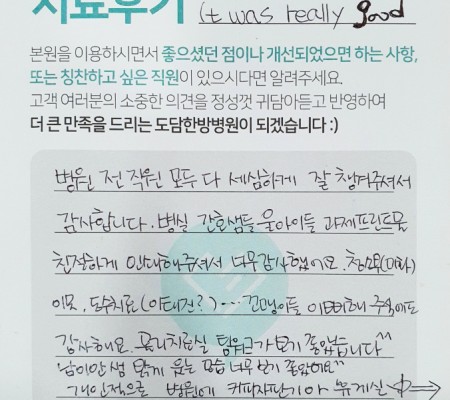 치료후기 it was really good
본원을 이용하시면서 좋으셨던 점이나 개선되었으면 하는 사항,
또는 칭찬하고 싶은 직원이 있으시다면 알려주세요.
고객 여러분의 소중한 의견을 정성껏 귀담아듣고 반영하여
더 큰 만족을 드리는 도담한방병원이 되겠습니다 :)
병원 전 직원 모두 다 세심하게 잘 챙겨주셔서
감사합니다. 병실 간호샘들 울아이들 과제프린트물
친절하게 인쇄해주셔서 너무감사했어요. 청소
이모, 도수치료(이태건?)... 꼬맹이들 이뻐해 주셔서도
감사해요. 물리치료실 팀워크가 보기 좋았습니다^^
샘 밝게 웃는 모습 너무 보기 좋았어요"
개인적으로 병원에 커피자판기아 휴게실